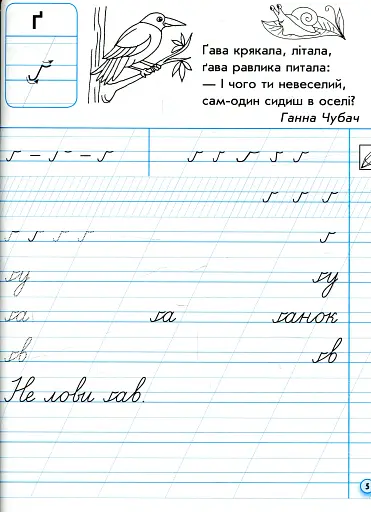 ґ
ґ
Ґава крякала, літала,
ґава равлика питала:
— І чого ти невеселий,
сам-один сидиш в оселі?
Ганна Чубач
ґ – ґ – ґ ґ ґ ґ ґ ґ
ґ ґ ґ
ґ ґ ґ ґ ґ
ґу ґу
ґа ґа ґанок
ґв ґв
Не лови ґав.
5